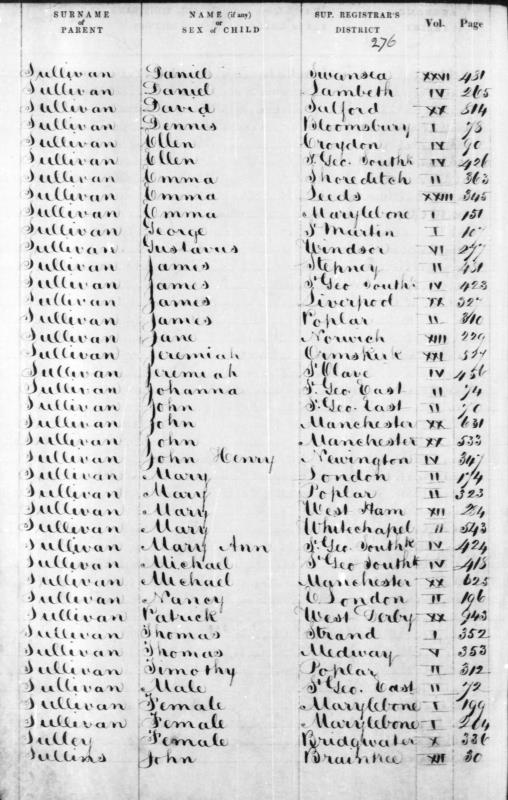 SURNAME of PARENT NAME (if any) or SEX of CHILD SUP. REGISTRAR'S DISTRICT Vol. Page
276
Sullivan Daniel Swansea XXVI 451
Sullivan Daniel Lambeth IV 265
Sullivan David Salford XX 814
Sullivan Dennis Bloomsbury I 73
Sullivan Ellen Croydon IV 90
Sullivan Ellen St Geo. Southk IV 426
Sullivan Emma Shoreditch II 363
Sullivan Emma Leeds XXIII 345
Sullivan Emma Marylebone I 151
Sullivan George St Martin I
Sullivan Gustavus Windsor VI 277
Sullivan James Stepney II 451
Sullivan James St Geo South. IV 423
Sullivan James Liverpool XX
Sullivan James Poplar II 310
Sullivan Jane Norwich XIII 229
Sullivan Jeremiah Ormskirk XXI
Sullivan Jeremiah St Olave IV 456
Sullivan Johanna St Geo. East II 74
Sullivan John St Geo. East II 70
Sullivan John Manchester XX 631
Sullivan John Manchester XX 533
Sullivan John Henry Newington IV 347
Sullivan Mary London II 174
Sullivan Mary Poplar II 323
Sullivan Mary West Ham XII
Sullivan Mary Whitechapel II 543
Sullivan Mary Ann St Geo. Southk IV 424
Sullivan Michael St Geo Southk IV 415
Sullivan Michael Manchester XX 625
Sullivan Nancy E London II 196
Sullivan Patrick West Derby XX 943
Sullivan Thomas Strand I 352
Sullivan Thomas Medway V 353
Sullivan Timothy Poplar II 312
Sullivan Male St Geo. East II 72
Sullivan Female Marylebone I 199
Sullivan Female Marylebone I 264
Sulley Female Bridgwater X 336
Sullins John Braintree XII 30